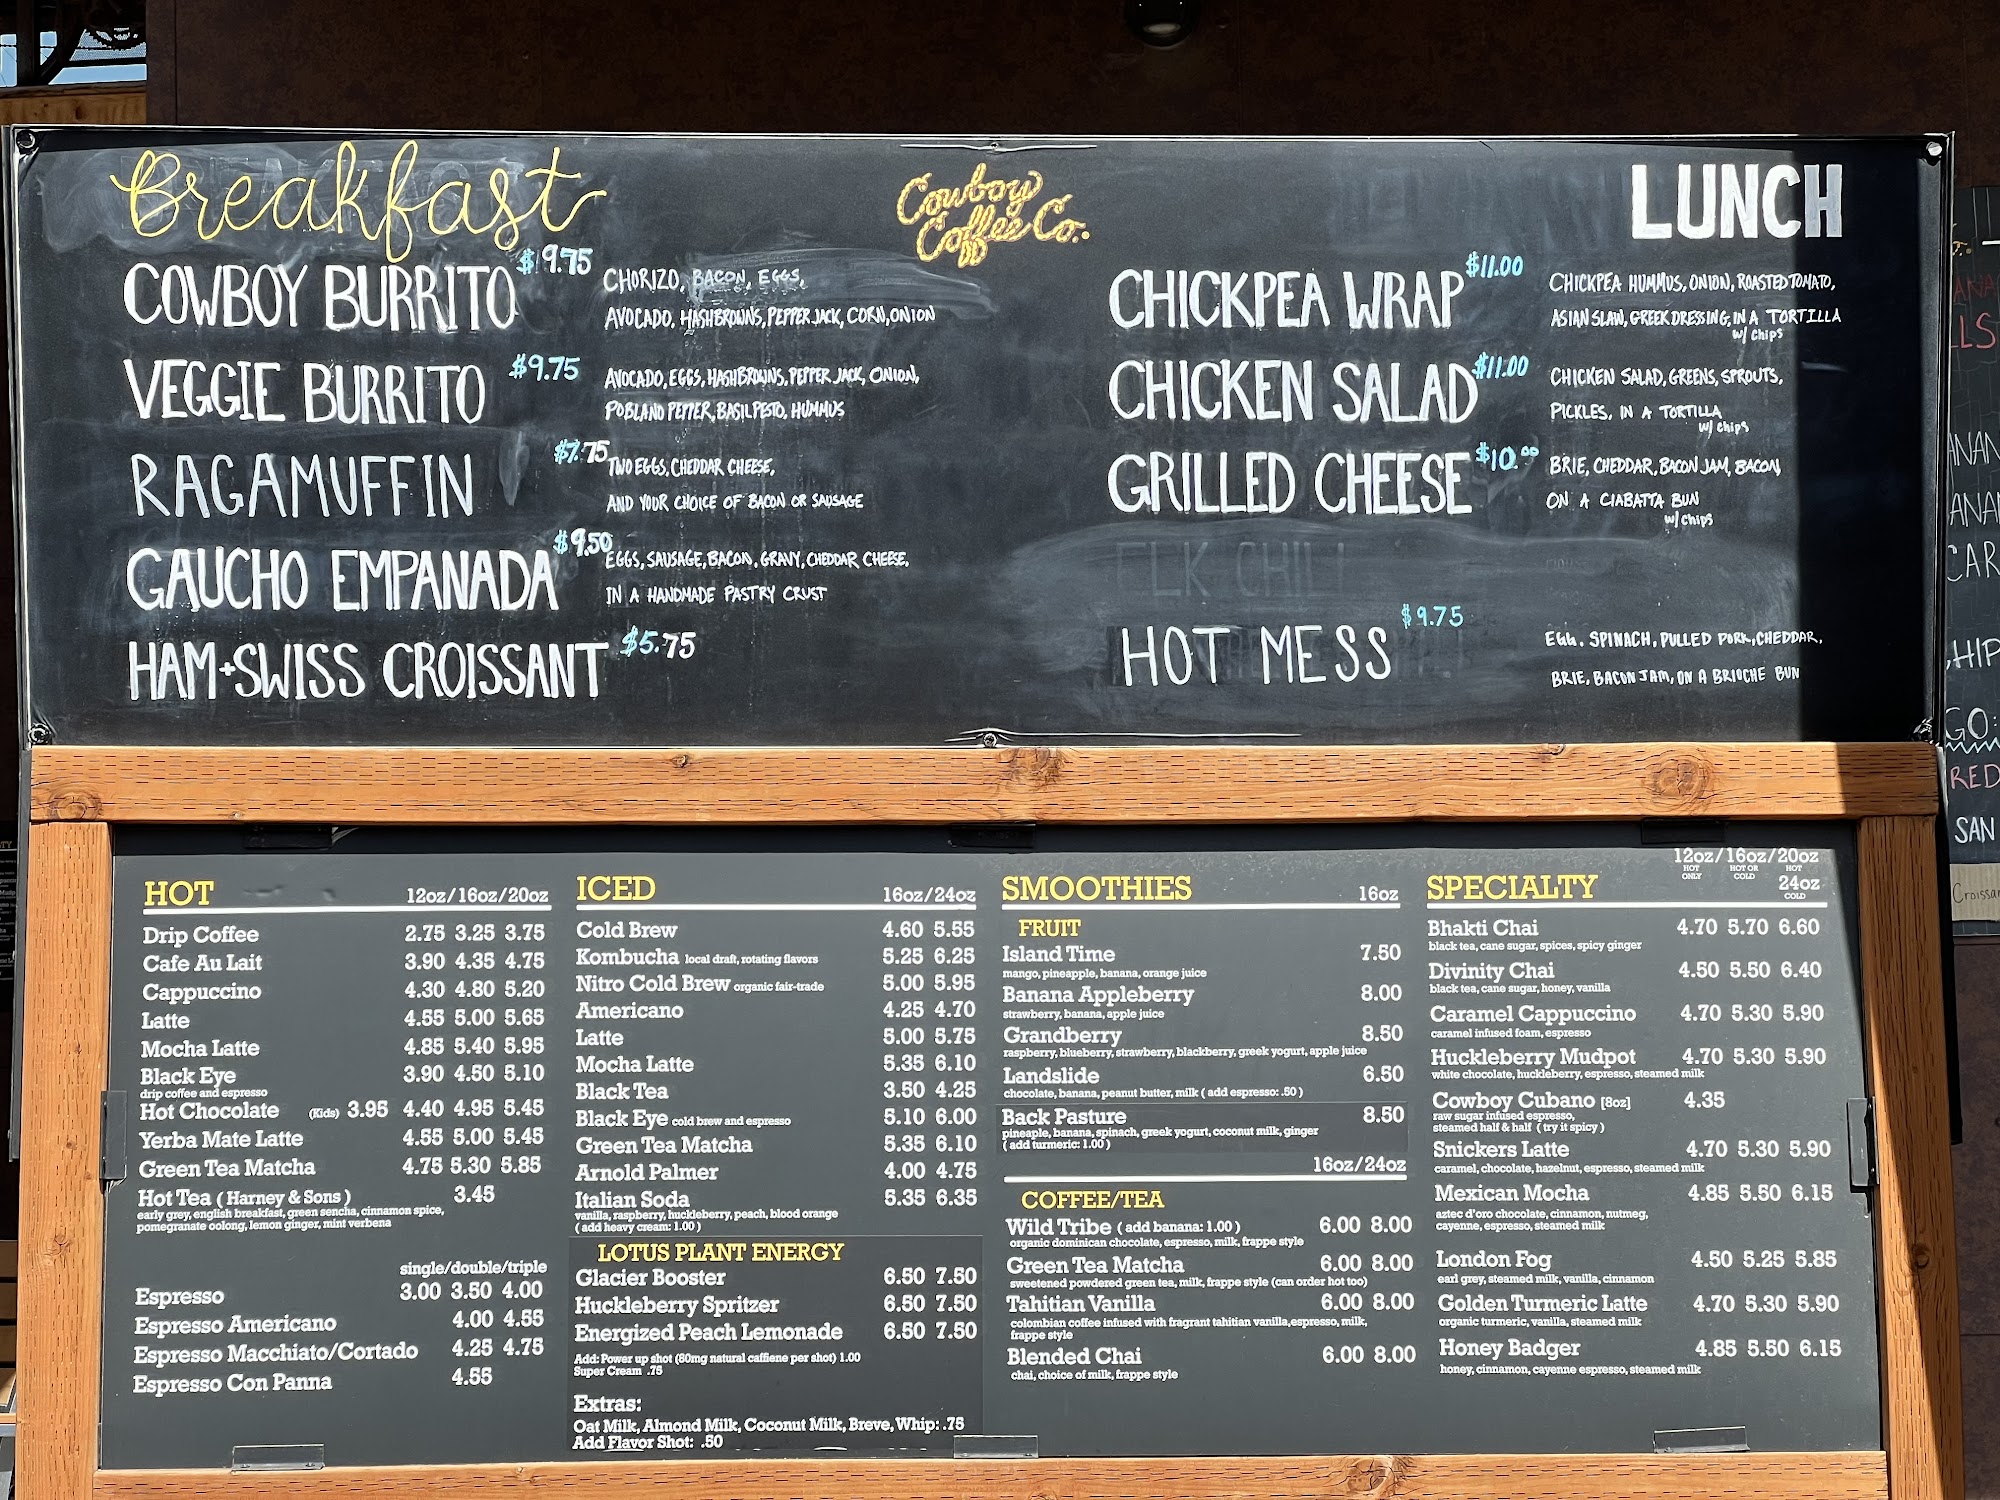 Breakfast
COWBOY BURRITO $9.75 CHORIZO, BACON, EGGS,
AVOCADO, HASHBROWNS, PEPPER JACK, CORN, ONION
VEGGIE BURRITO $9.75 AVOCADO, EGGS, HASHBROWNS, PEPPER JACK, ONION,
POBLANO PEPPER, BASIL PESTO, HUMMUS
RAGAMUFFIN $7.75 TWO EGGS, CHEDDAR CHEESE,
AND YOUR CHOICE OF BACON OR SAUSAGE
GAUCHO EMPANADA $9.50 EGGS, SAUSAGE, BACON, GRAVY, CHEDDAR CHEESE,
IN A HANDMADE PASTRY CRUST
HAM+SWISS CROISSANT $5.75
Cowboy
Coffee Co.
LUNCH
CHICKPEA WRAP $11.00 CHICKPEA HUMMUS, ONION, ROASTED TOMATO,
ASIAN SLAW, GREEK DRESSING, IN A TORTILLA
w/ chips
CHICKEN SALAD $11.00 CHICKEN SALAD, GREENS, SPROUTS,
PICKLES, IN A TORTILLA
w/ chips
GRILLED CHEESE $10.00 BRIE, CHEDDAR, BACON JAM, BACON,
ON A CIABATTA BUN
w/ chips
ELK CHILI
HOT MESS $9.75 EGG, SPINACH, PULLED PORK, CHEDDAR,
BRIE, BACON JAM, ON A BRIOCHE BUN
HOT 12oz/16oz/20oz
Drip Coffee 2.75 3.25 3.75
Cafe Au Lait 3.90 4.35 4.75
Cappuccino 4.30 4.80 5.20
Latte 4.55 5.00 5.65
Mocha Latte 4.85 5.40 5.95
Black Eye 3.90 4.50 5.10
drip coffee and espresso
Hot Chocolate (Kids) 3.95 4.40 4.95 5.45
Yerba Mate Latte 4.55 5.00 5.45
Green Tea Matcha 4.75 5.30 5.85
Hot Tea ( Harney & Sons ) 3.45
early grey, english breakfast, green sencha, cinnamon spice,
pomegranate oolong, lemon ginger, mint verbena
single/double/triple
Espresso 3.00 3.50 4.00
Espresso Americano 4.00 4.55
Espresso Macchiato/Cortado 4.25 4.75
Espresso Con Panna 4.55
ICED 16oz/24oz
Cold Brew 4.60 5.55
Kombucha local draft, rotating flavors 5.25 6.25
Nitro Cold Brew organic fair-trade 5.00 5.95
Americano 4.25 4.70
Latte 5.00 5.75
Mocha Latte 5.35 6.10
Black Tea 3.50 4.25
Black Eye cold brew and espresso 5.10 6.00
Green Tea Matcha 5.35 6.10
Arnold Palmer 4.00 4.75
Italian Soda 5.35 6.35
vanilla, raspberry, huckleberry, peach, blood orange
( add heavy cream: 1.00 )
LOTUS PLANT ENERGY
Glacier Booster 6.50 7.50
Huckleberry Spritzer 6.50 7.50
Energized Peach Lemonade 6.50 7.50
Add: Power up shot (80mg natural caffiene per shot) 1.00
Super Cream .75
Extras:
Oat Milk, Almond Milk, Coconut Milk, Breve, Whip: .75
Add Flavor Shot: .50
SMOOTHIES 16oz
FRUIT
Island Time 7.50
mango, pineapple, banana, orange juice
Banana Appleberry 8.00
strawberry, banana, apple juice
Grandberry 8.50
raspberry, blueberry, strawberry, blackberry, greek yogurt, apple juice
Landslide 6.50
chocolate, banana, peanut butter, milk ( add espresso: .50 )
Back Pasture 8.50
pineaple, banana, spinach, greek yogurt, coconut milk, ginger
( add turmeric: 1.00 )
16oz/24oz
COFFEE/TEA
Wild Tribe ( add banana: 1.00 ) 6.00 8.00
organic dominican chocolate, espresso, milk, frappe style
Green Tea Matcha 6.00 8.00
sweetened powdered green tea, milk, frappe style (can order hot too)
Tahitian Vanilla 6.00 8.00
colombian coffee infused with fragrant tahitian vanilla, espresso, milk,
frappe style
Blended Chai 6.00 8.00
chai, choice of milk, frappe style
12oz/16oz/20oz
HOT ONLY HOT OR COLD HOT
SPECIALTY 24oz
COLD
Bhakti Chai 4.70 5.70 6.60
black tea, cane sugar, spices, spicy ginger
Divinity Chai 4.50 5.50 6.40
black tea, cane sugar, honey, vanilla
Caramel Cappuccino 4.70 5.30 5.90
caramel infused foam, espresso
Huckleberry Mudpot 4.70 5.30 5.90
white chocolate, huckleberry, espresso, steamed milk
Cowboy Cubano [8oz] 4.35
raw sugar infused espresso,
steamed half & half ( try it spicy )
Snickers Latte 4.70 5.30 5.90
caramel, chocolate, hazelnut, espresso, steamed milk
Mexican Mocha 4.85 5.50 6.15
aztec d'oro chocolate, cinnamon, nutmeg,
cayenne, espresso, steamed milk
London Fog 4.50 5.25 5.85
earl grey, steamed milk, vanilla, cinnamon
Golden Turmeric Latte 4.70 5.30 5.90
organic turmeric, vanilla, steamed milk
Honey Badger 4.85 5.50 6.15
honey, cinnamon, cayenne espresso, steamed milk
RED
SAN